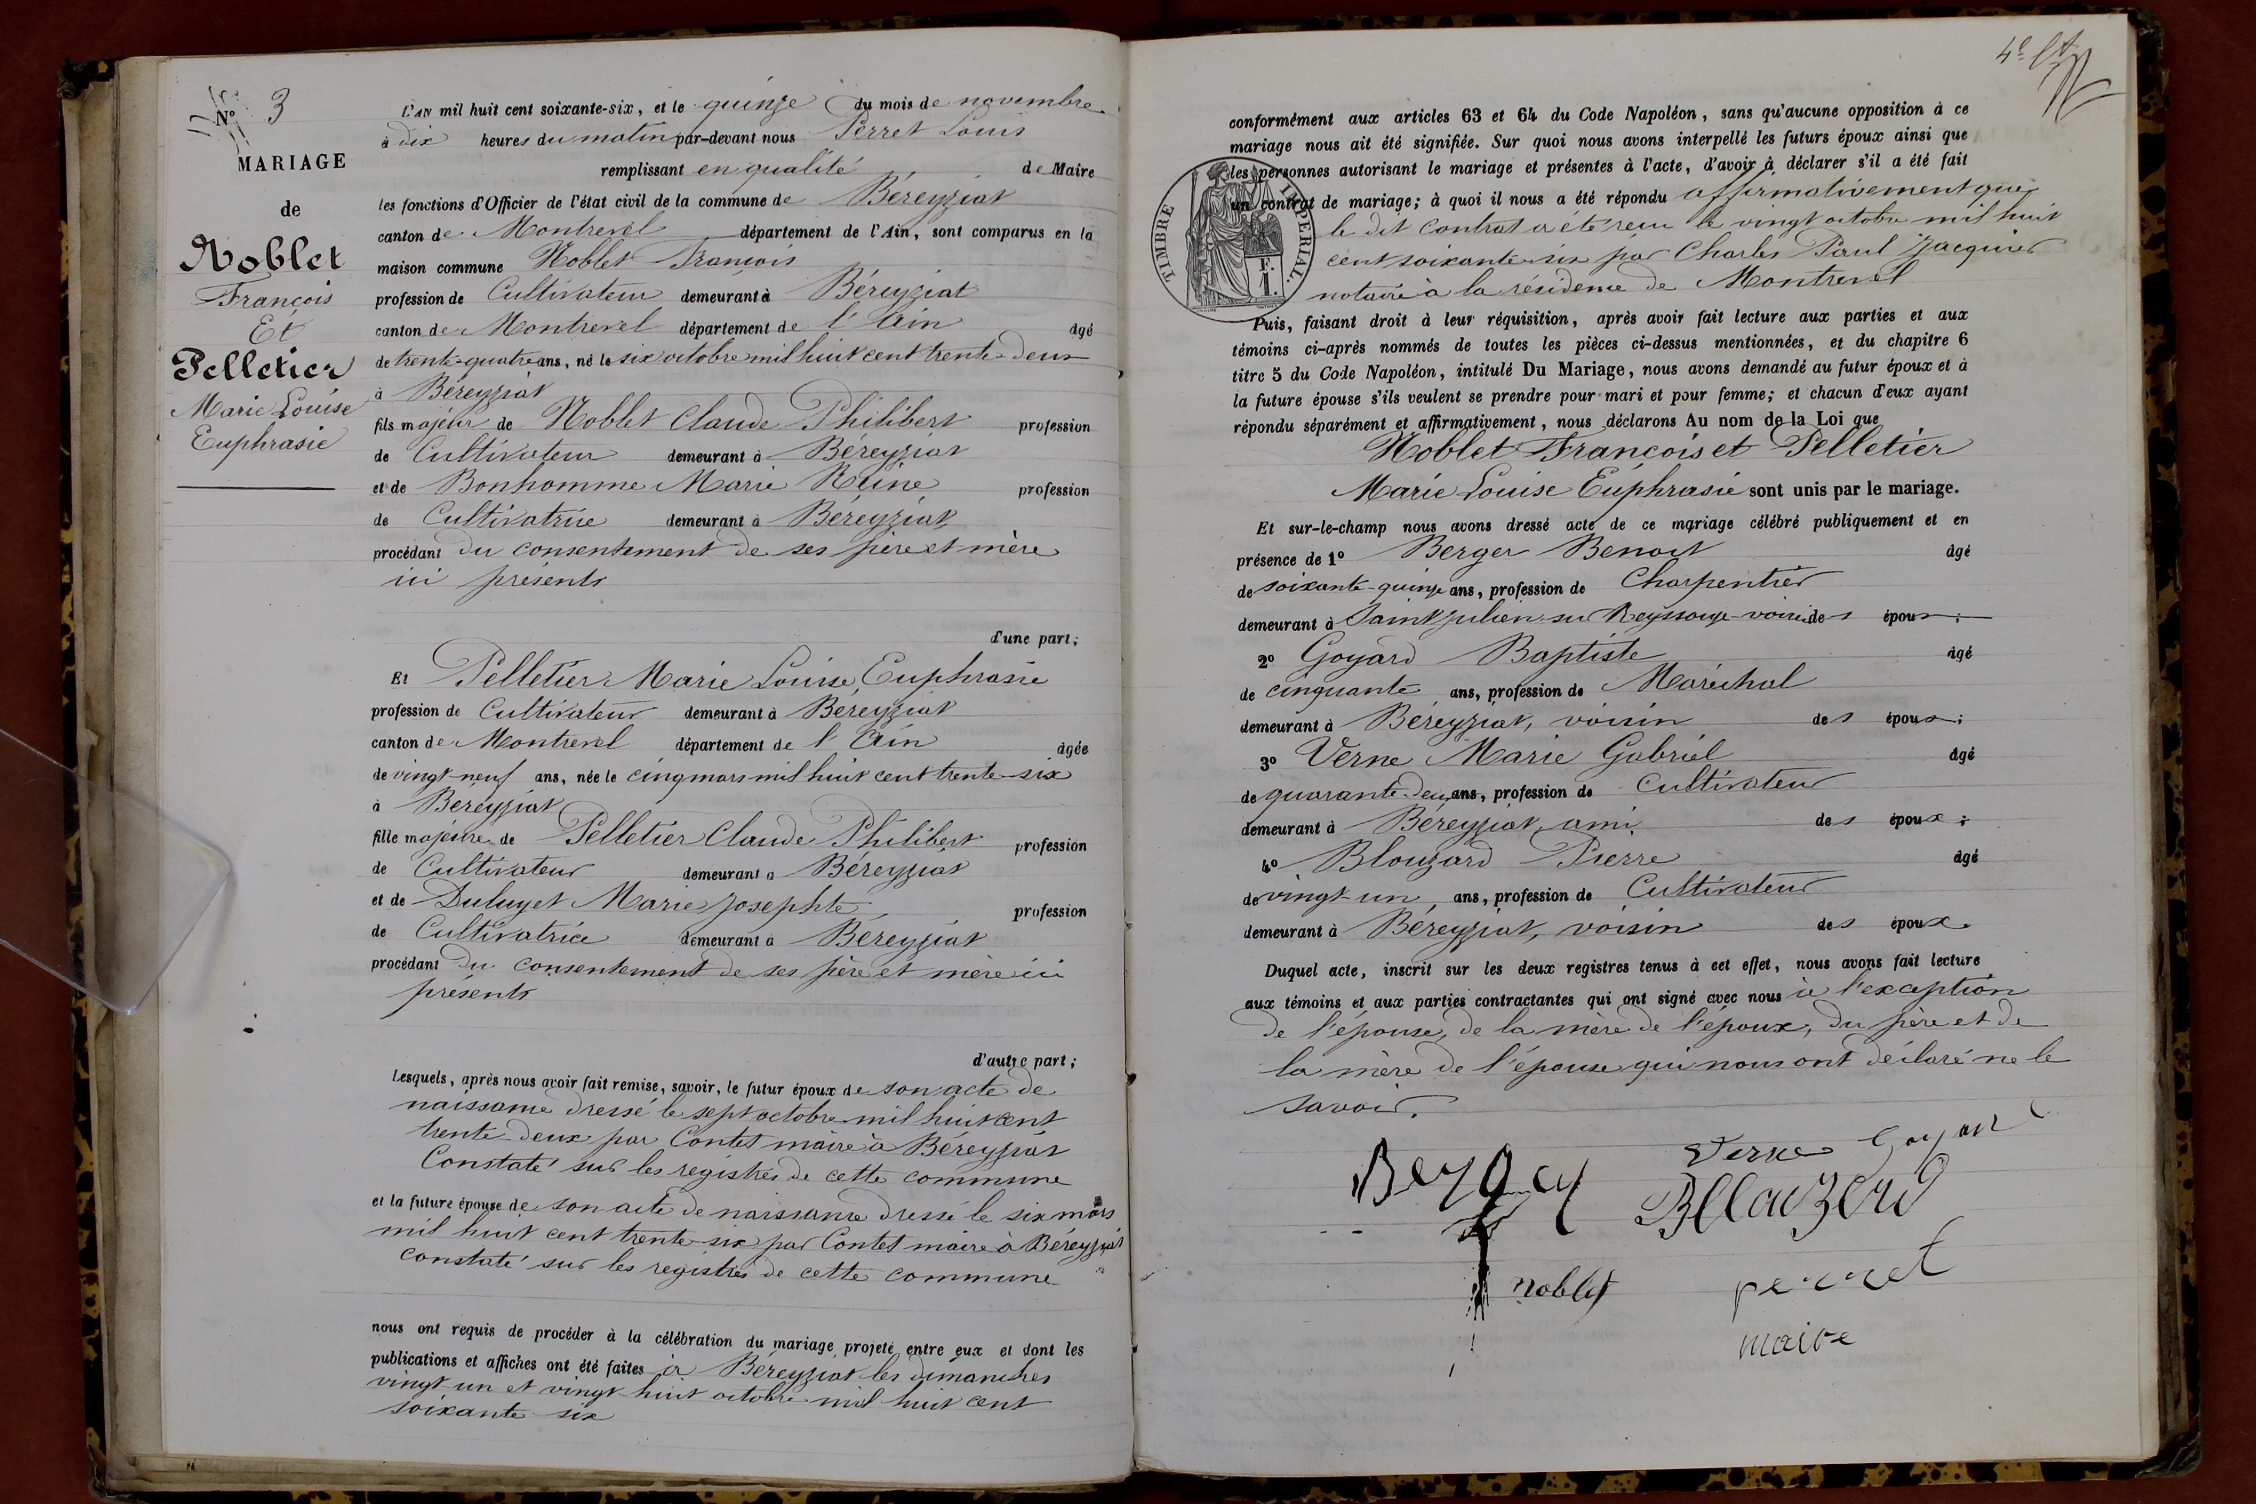 Nº 3
MARIAGE
de
Noblet
François
Et
Pelletier
Marie Louise
Euphrasie
L'AN mil huit cent soixante-six, et le quinze du mois de novembre
à dix heures du matin par-devant nous Perret Louis
remplissant en qualité de Maire
les fonctions d'Officier de l'état civil de la commune de Béreyziat
canton de Montrevel département de l'Ain, sont comparus en la
maison commune Noblet François
profession de Cultivateur demeurant à Béreyziat
canton de Montrevel département de l'Ain âgé
de trente-quatre ans, né le six octobre mil huit cent trente-deux
à Béreyziat
fils majeur de Noblet Claude Philibert profession
de Cultivateur demeurant à Béreyziat
et de Bonhomme Marie Reine profession
de Cultivatrice demeurant à Béreyziat
procédant du consentement de ses père et mère
ici présents
d'une part;
Et Pelletier Marie Louise, Euphrasie
profession de Cultivateur demeurant à Béreyziat
canton de Montrevel département de l'Ain âgée
de vingt-neuf ans, née le cinq mars mil huit cent trente-six
à Béreyziat
fille majeure de Pelletier Claude Philibert profession
de Cultivateur demeurant à Béreyziat
et de Duluyet Marie Josephte profession
de Cultivatrice demeurant à Béreyziat
procédant du consentement de ses père et mère ici
présents
d'autre part;
Lesquels, après nous avoir fait remise, savoir, le futur époux de son acte de
naissance dressé le sept octobre mil huit cent
trente-deux par Contet maire à Béreyziat
Constaté sur les registres de cette commune
et la future épouse de son acte de naissance dressé le six mars
mil huit cent trente-six par Contet maire à Béreyziat
constaté sur les registres de cette commune
nous ont requis de procéder à la célébration du mariage projeté entre eux et dont les
publications et affiches ont été faites à Béreyziat les dimanches
vingt-un et vingt-huit octobre mil huit cent
soixante-six
conformément aux articles 63 et 64 du Code Napoléon, sans qu'aucune opposition à ce
mariage nous ait été signifiée. Sur quoi nous avons interpellé les futurs époux ainsi que
les personnes autorisant le mariage et présentes à l'acte, d'avoir à déclarer s'il a été fait
un contrat de mariage; à quoi il nous a été répondu affirmativement que
le dit contrat a été reçu le vingt octobre mil huit
cent soixante-six par Charles Paul Jacquier
notaire à la résidence de Montrevel
TIMBRE IMPERIAL.
F.
1.
Puis, faisant droit à leur réquisition, après avoir fait lecture aux parties et aux
témoins ci-après nommés de toutes les pièces ci-dessus mentionnées, et du chapitre 6
titre 5 du Code Napoléon, intitulé Du Mariage, nous avons demandé au futur époux et à
la future épouse s'ils veulent se prendre pour mari et pour femme; et chacun d'eux ayant
répondu séparément et affirmativement, nous déclarons Au nom de la Loi que
Noblet François et Pelletier
Marie Louise Euphrasie sont unis par le mariage.
Et sur-le-champ nous avons dressé acte de ce mariage célébré publiquement et en
présence de 1º Berger Benoit âgé
de soixante-quinze ans, profession de Charpentier
demeurant à Saint Julien sur Reyssouze voisin des époux;
2º Goyard Baptiste âgé
de cinquante ans, profession de Maréchal
demeurant à Béreyziat, voisin des époux;
3º Verne Marie Gabriel âgé
de quarante-deux ans, profession de Cultivateur
demeurant à Béreyziat, ami des époux;
4º Blouzard Pierre âgé
de vingt-un, ans, profession de Cultivateur
demeurant à Béreyziat, voisin des époux.
Duquel acte, inscrit sur les deux registres tenus à cet effet, nous avons fait lecture
aux témoins et aux parties contractantes qui ont signé avec nous à l'exception
de l'épouse, de la mère de l'époux, du père et de
la mère de l'épouse qui nous ont déclaré ne le
savoir.
Verne Goyard
Berger Blouzard
Noblet perret
maire